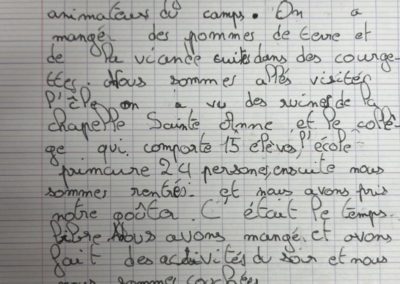 animateurs du camps. On a
mangé des pommes de terre et
de la viance cuites dans des courge-
ttes. Nous sommes allés visités
l'île on a vu des ruines de la
chapelle Sainte Anne et le collè-
ge qui comporte 15 élèves, l'école
primaire 24 persones, ensuite nous
sommes rentrés. et nous avons pris
notre goûter. C'était le temps
libre Nous avons mangé, et avons
fait des activités du soir et nous
nous sommes couchés